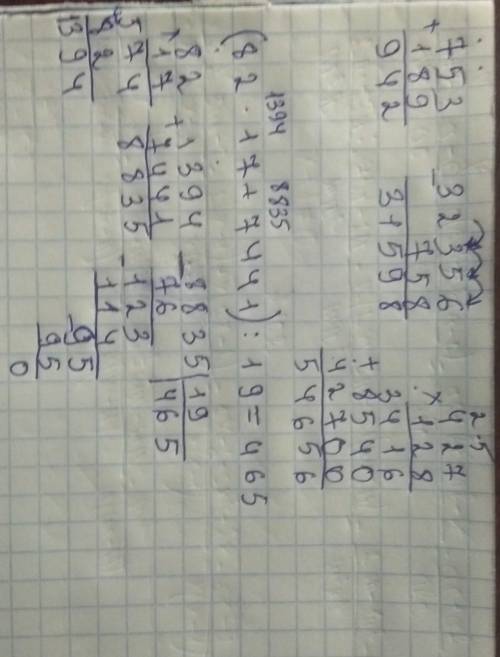 753
+ 189
942
- 32356
758
31598
2 5
× 427
128
3416
+ 8540
42700
54656
1394 8835
(82 · 17 + 7441) : 19 = 465
× 82
17
+ 574
82
1394
+ 1394
7441
8835
- 8835 | 19
76 | 465
- 123
114
- 95
95
0